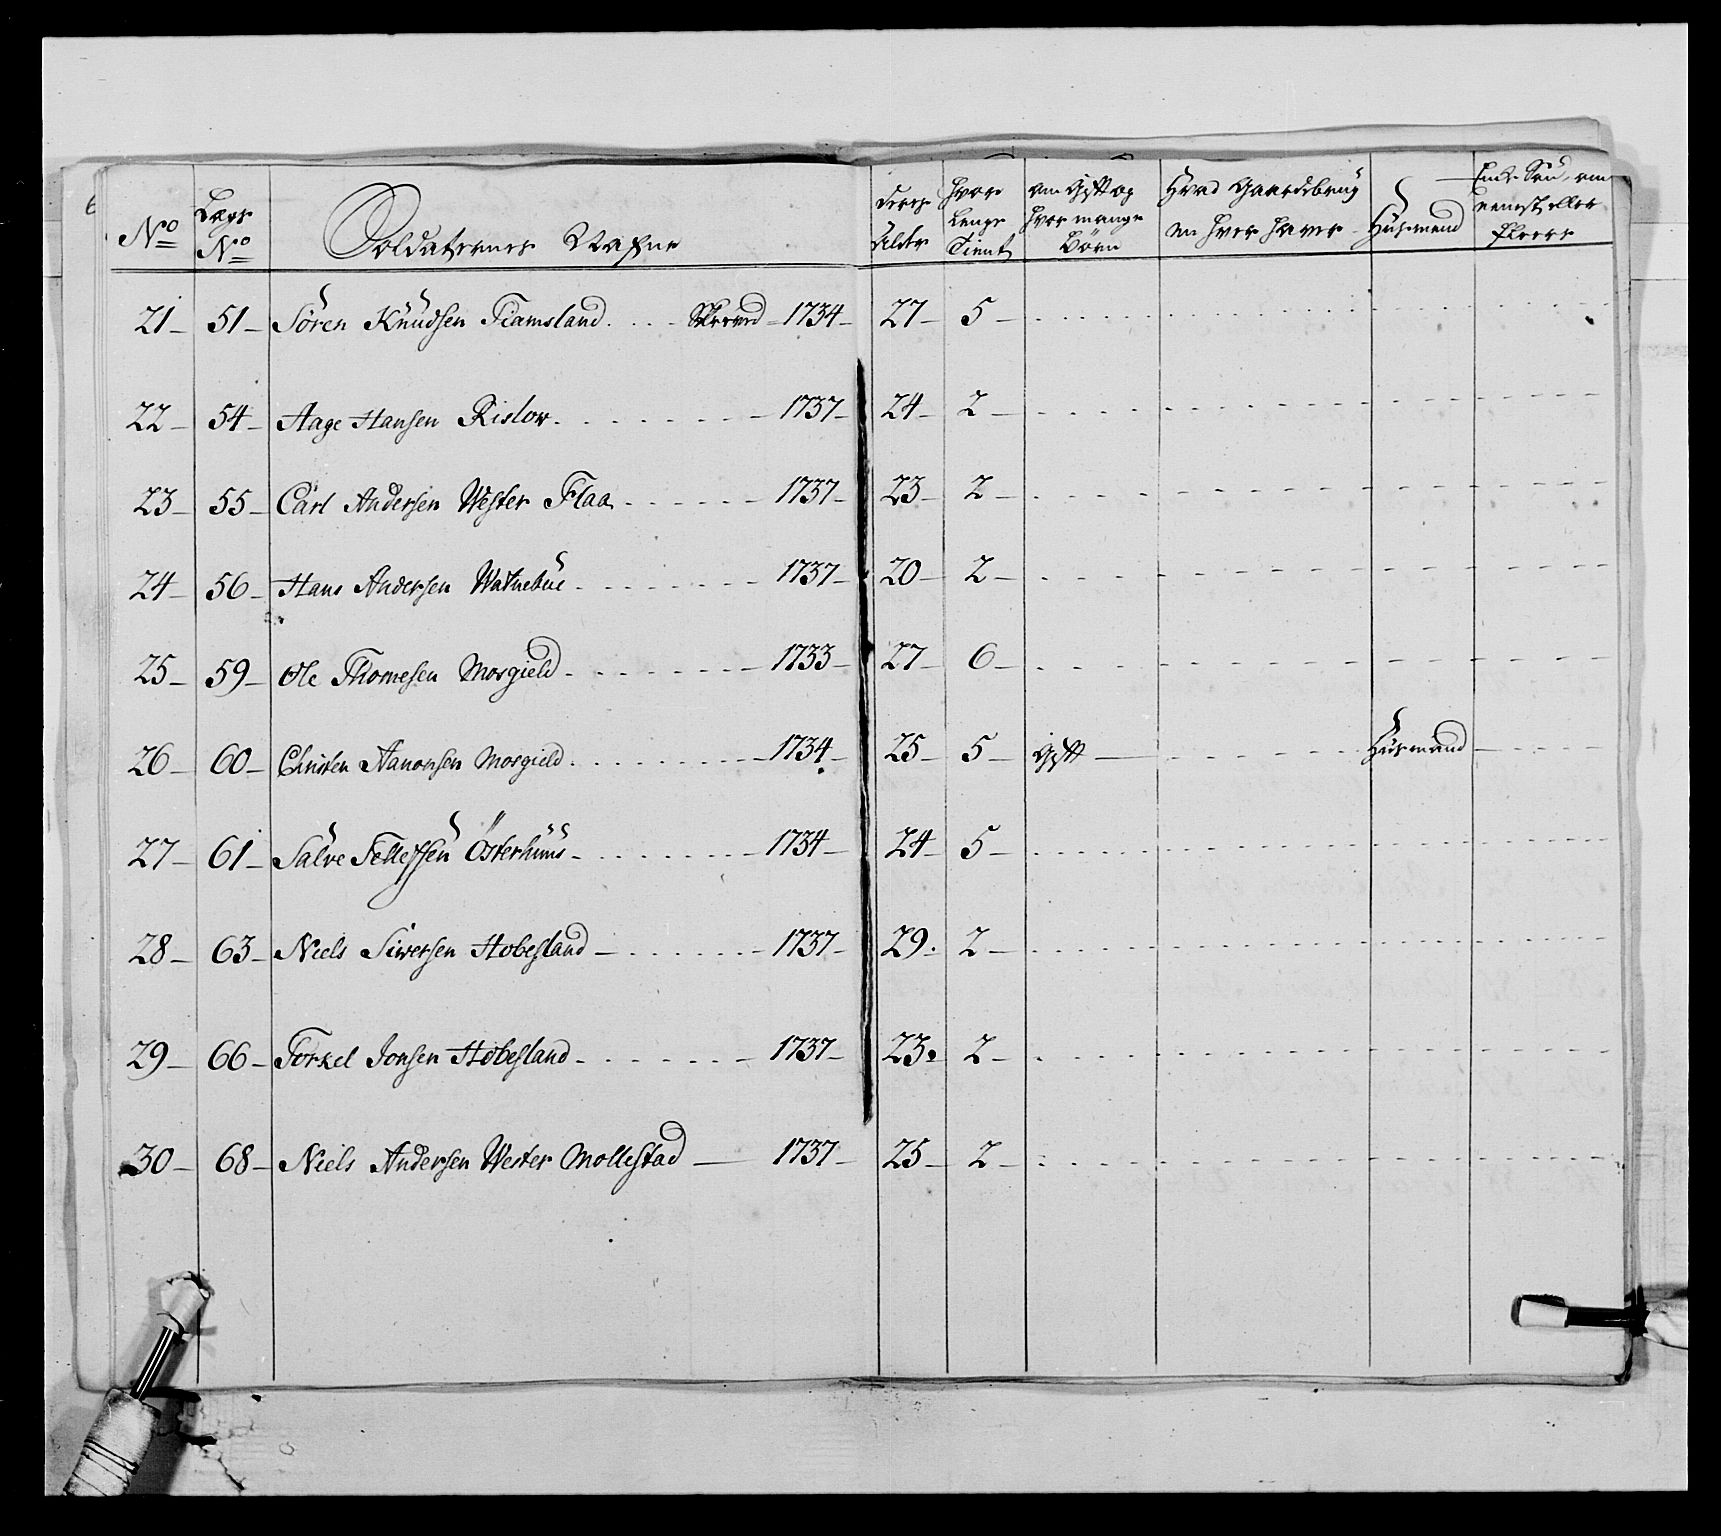 No Lægs No Soldaternes Nafne deres Alder hvor Lenge Tient om Gift og hvor mange Börn Hvad Gaardsbrug en hver haver Husmand Enke Sön, om eeneste eller fleere
21 51 Sören Knudsen Tiamsland 1734 27 5
22 54 Aage Hansen Rislow 1737 24 2
23 55 Carl Andersen Wester Flaa 1737 23 2
24 56 Hans Andersen Watnebue 1737 20 2
25 59 Ole Thomesen Mosgield 1733 27 6
26 60 Christen Aanonsen Mosgield 1734 25 5 Gift Husmand
27 61 Salve Tellefsen Österhuus 1734 24 5
28 63 Niels Siversen Hobesland 1737 29 2
29 66 Torkel Jonsen Hobesland 1737 23 2
30 68 Niels Andersen Wester Mollestad 1737 25 2